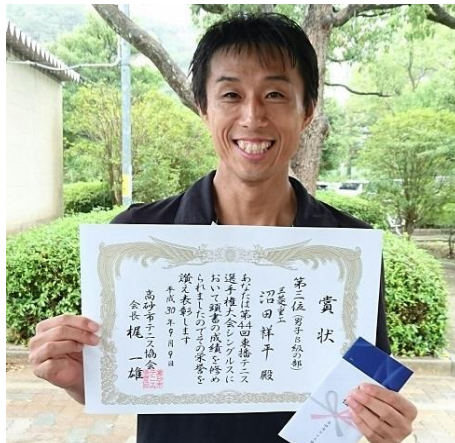 賞状
第三位(男子B級の部)
三菱重工
沼田祥平 殿
あなたは第44回東播テニス
選手権大会シングルスに
おいて頭書の成績を修め
られましたのでその栄誉を
讃え表彰します
平成30年9月9日
高砂市テニス協会
会長 梶 一雄